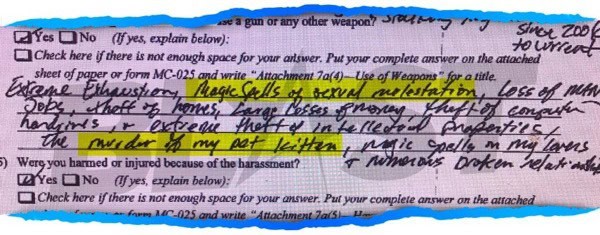 use a gun or any other weapon? Stalking my since 200
☑Yes ☐ No (If yes, explain below): to current
☐ Check here if there is not enough space for your answer. Put your complete answer on the attached
sheet of paper or form MC-025 and write "Attachment 7a(4)—Use of Weapons" for a title.
Extreme Exhaustion, Magic Spells of sexual molestation, Loss of
Jobs, theft of homes, Large Losses of money, theft of computer
hardrives, & extreme theft of intellectual properties,
the murder of my pet kitten, magic spells on my lovers
5) Were you harmed or injured because of the harassment? & numerous broken relationships
☑Yes ☐ No (If yes, explain below):
☐ Check here if there is not enough space for your answer. Put your complete answer on the attached
form MC-025 and write "Attachment 7a(5)—